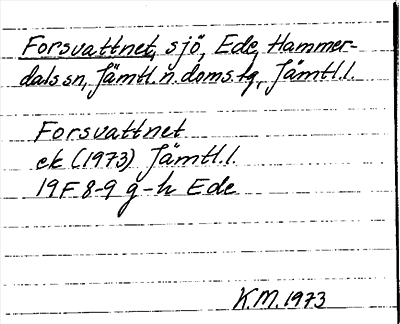 Forsvattnet, sjö, Ede, Hammer-
dals sn, Jämtl. n. doms. tg, Jämtl. l.
Forsvattnet
ek (1973) Jämtl. l.
19F 8-9 g-h Ede
K.M. 1973